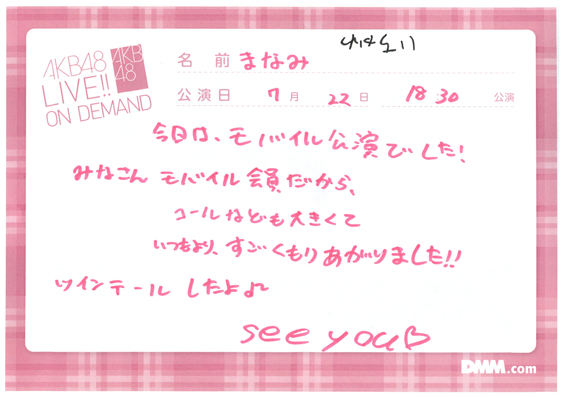 AKB48
LIVE!!
ON DEMAND
AKB
48
名前 まなみ
公演日 7月 22日 18 30 公演
今日は、モバイル公演でした!
みなさん モバイル会員だから、
コールなども大きくて
いつもより、すごくもりあがりました!!
ツインテール したよ♪
see you♡
DMM.com